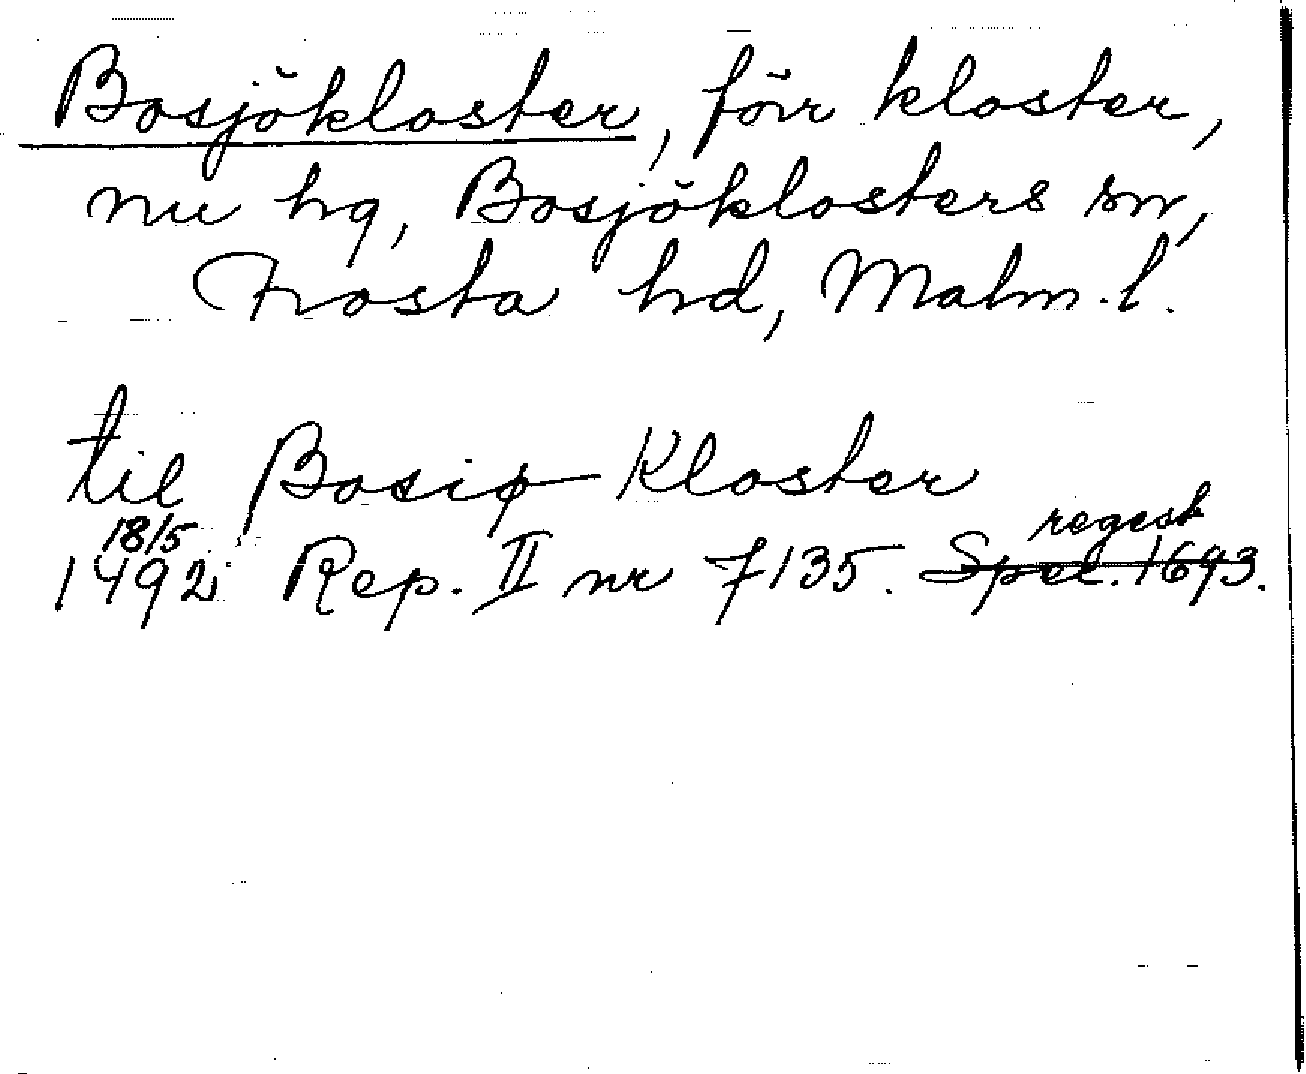 Bosjökloster, förr kloster,
nu hg, Bosjöklosters sn,
Frosta hd, Malm. l.
til Bosiø Kloster
18/5 regest
1492 Rep. II nr 7135. Spec. 1693.